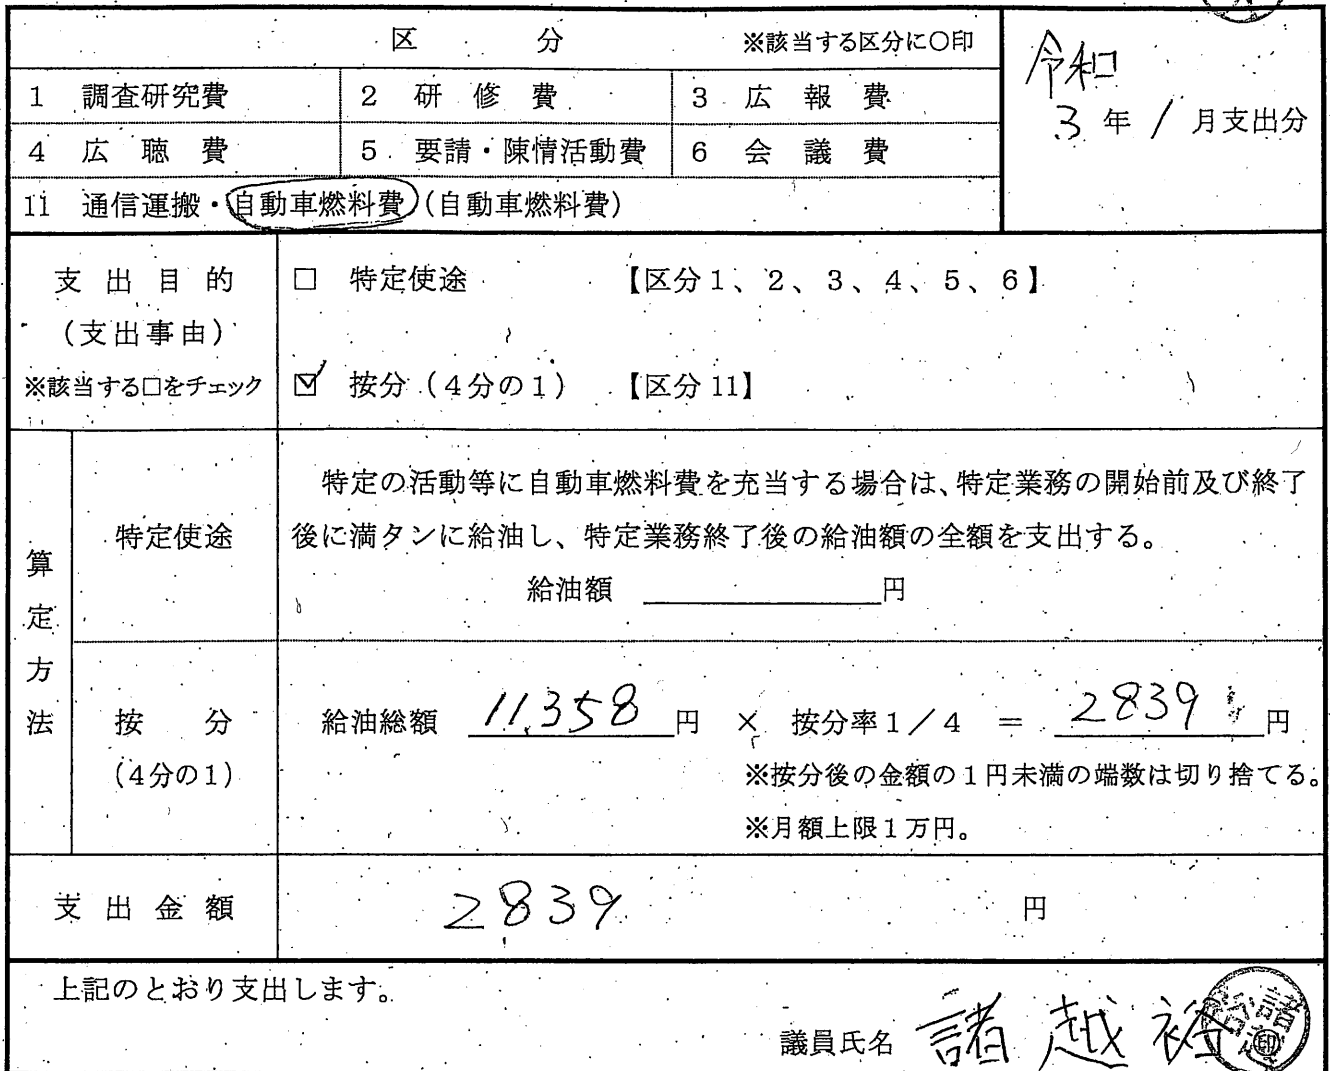 区 分 ※該当する区分に○印
令和
3年1月支出分
1 調査研究費 2 研修費 3 広報費
4 広聴費 5 要請・陳情活動費 6 会議費
11 通信運搬・自動車燃料費(自動車燃料費)
支出目的
(支出事由)
※該当する□をチェック
□ 特定使途 【区分1、2、3、4、5、6】
☑ 按分(4分の1) 【区分11】
算定方法
特定使途
特定の活動等に自動車燃料費を充当する場合は、特定業務の開始前及び終了
後に満タンに給油し、特定業務終了後の給油額の全額を支出する。
給油額 円
按分
(4分の1)
給油総額 11,358 円 × 按分率1/4 = 2839 円
※按分後の金額の1円未満の端数は切り捨てる。
※月額上限1万円。
支出金額 2839 円
上記のとおり支出します。
議員氏名 諸越裕